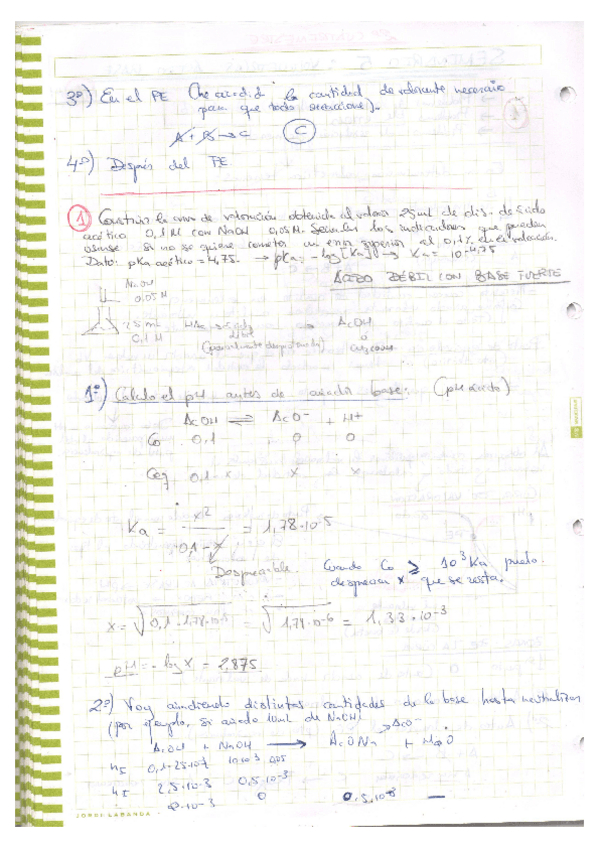 3º) En el PE (he añadido la cantidad de valorante necesario
para que todo reaccione).
A + B → C C
4º) Después del PE
1 Construir la curva de valoración obtenida al valorar 25ml de dis. de ácido
acético 0,1 M con NaOH 0,05M. Señalar los indicadores que pueden
usarse si no se quiere cometer un error superior al 0,1% en la valoración.
Dato: pKa acético = 4,75. → pKa = -log[Ka] → Ka = 10^-4,75
ÁCIDO DÉBIL CON BASE FUERTE
NaOH
0,05M
25 ml
0,1 M
HAc
AcOH
1º) Calculo el pH antes de añadir base: (pH ácido)
AcOH ⇌ AcO- + H+
Co 0,1 0 0
Ceq 0,1-x x x
Ka = x²/0,1-x = 1,78·10^-5
Despreciable. Cuando Co ⩾ 10^3 Ka puedo
despreciar x que se resta.
x = √0,1·1,78·10^-5 = √1,78·10^-6 = 1,33·10^-3
pH = -log x = 2,875
2º) Voy añadiendo distintas cantidades de la base hasta neutralizar
(por ejemplo, si añado 10ml de NaOH)
AcO-
AcOH + NaOH → AcONa + H2O
0,1·25·10^-3 10·10^-3·0,05
2,5·10^-3 0,5·10^-3
2·10^-3 0 0,5·10^-3 —
JORDI LABANDA